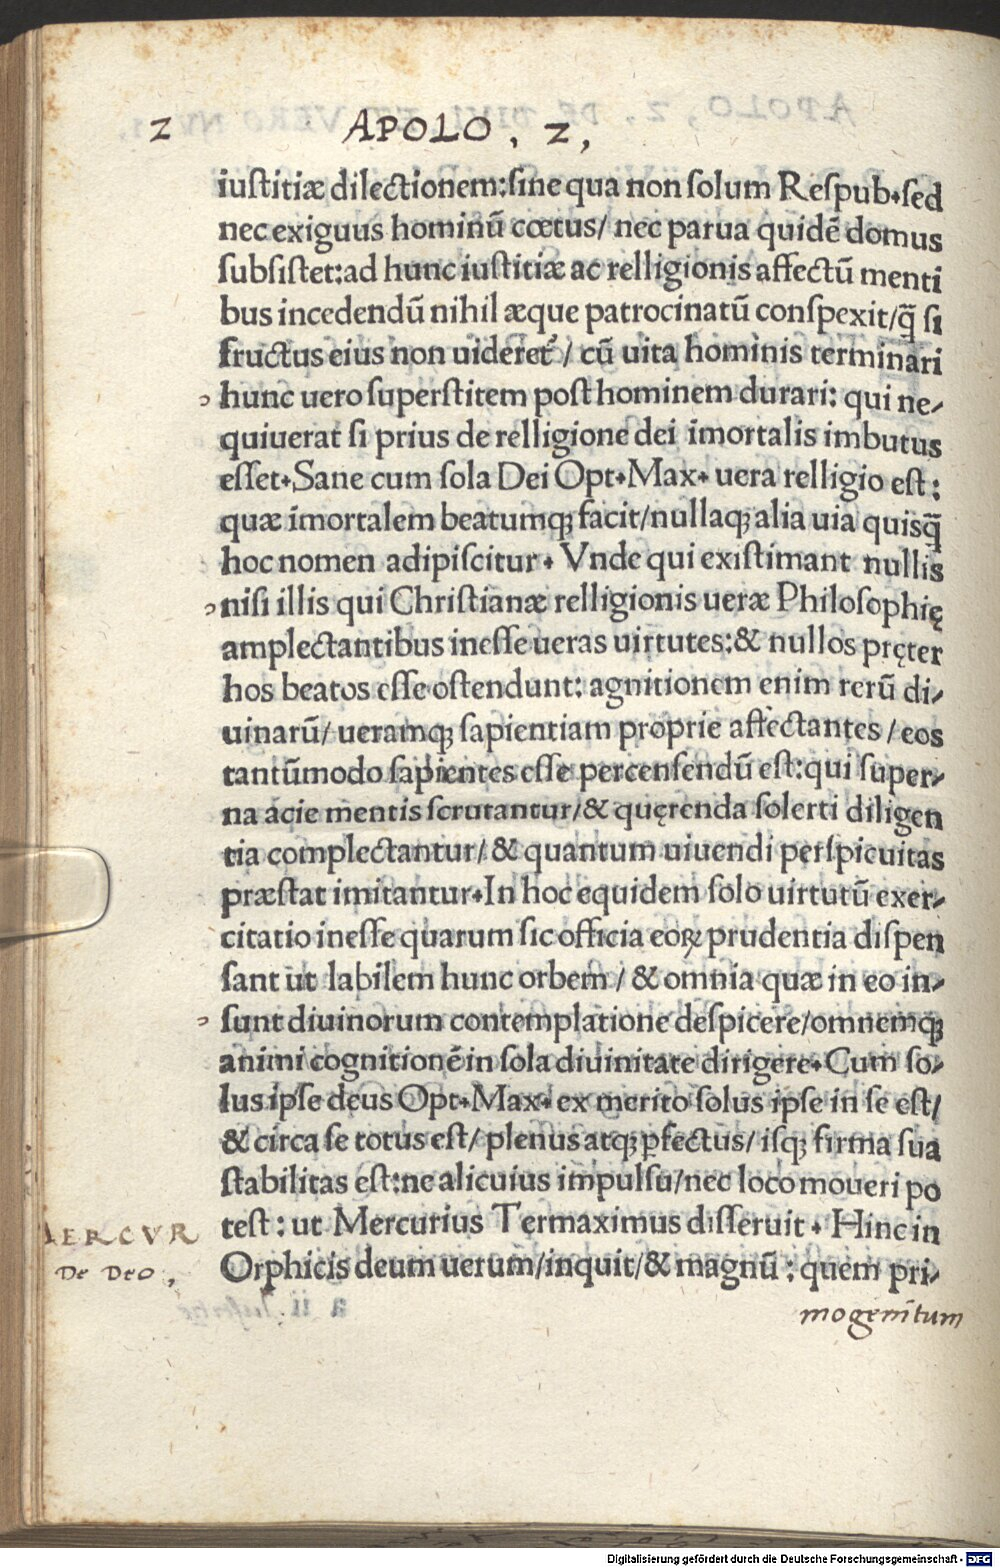 2 APOLO, 2,
iustitiæ dilectionem: sine qua non solum Respub. sed
nec exiguus hominũ cœtus/ nec parua quidẽ domus
subsistet: ad hunc iustitiæ ac relligionis affectũ menti
bus incedendũ nihil æque patrocinatũ conspexit/ q̃ si
fructus eius non uideret᷑ / cũ uita hominis terminari
hunc uero superstitem post hominem durari: qui ne-
quiuerat si prius de relligione dei imortalis imbutus
esset. Sane cum sola Dei Opt. Max. uera relligio est:
quæ imortalem beatumqꝫ facit/ nullaqꝫ alia uia quisq̃
hoc nomen adipiscitur. Vnde qui existimant nullis
nisi illis qui Christianæ relligionis ueræ Philosophię
amplectantibus inesse ueras uirtutes: & nullos pręter
hos beatos esse ostendunt: agnitionem enim rerũ di-
uinarũ/ ueramqꝫ sapientiam proprie affectantes / eos
tantũmodo sapientes esse percensendũ est: qui super-
na acie mentis scrutantur/ & quęrenda solerti diligen
tia complectantur/ & quantum uiuendi perspicuitas
præstat imitantur. In hoc equidem solo uirtutũ exer-
citatio inesse quarum sic officia eoꝝ prudentia dispen
sant ut labilem hunc orbem / & omnia quæ in eo in-
sunt diuinorum contemplatione despicere/ omnemqꝫ
animi cognitionẽ in sola diuinitate dirigere. Cum so-
lus ipse deus Opt. Max. ex merito solus ipse in se est/
& circa se totus est/ plenus atqꝫ ꝑfectus/ isqꝫ firma sua
stabilitas est: ne alicuius impulsu/ nec loco moueri po
test: ut Mercurius Termaximus disseruit. Hinc in
Orphicis deum uerum/ inquit/ & magnũ: quem pri-
MERCVR
De Deo,
mogenĩtum
Digitalisierung gefördert durch die Deutsche Forschungsgemeinschaft - DFG